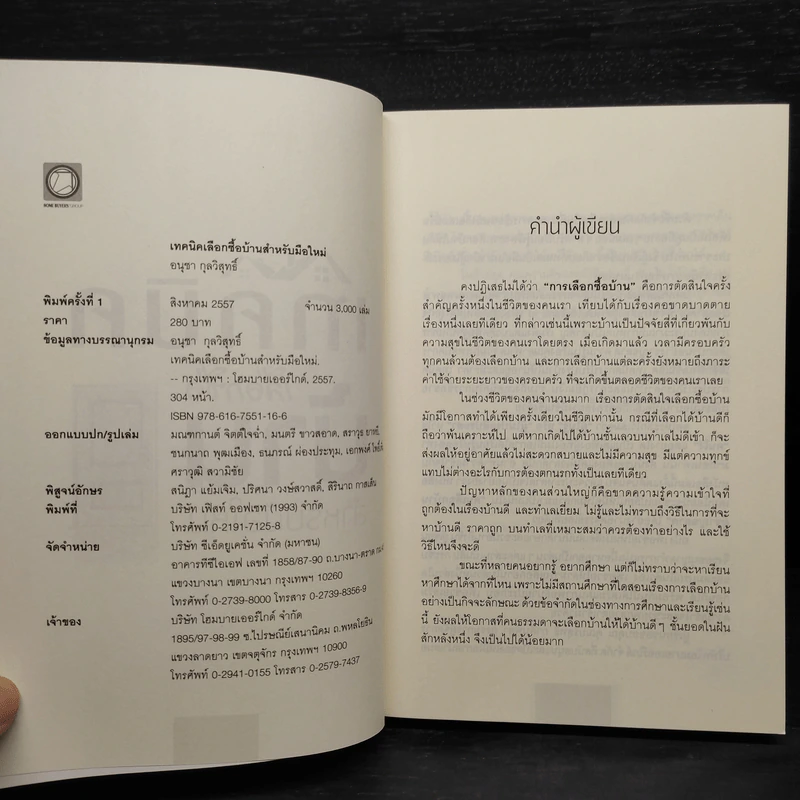 HOME BUYERS GROUP
เทคนิคเลือกซื้อบ้านสำหรับมือใหม่
อนุชา กุลวิสุทธิ์
พิมพ์ครั้งที่ 1 สิงหาคม 2557 จำนวน 3,000 เล่ม
ราคา 280 บาท
ข้อมูลทางบรรณานุกรม อนุชา กุลวิสุทธิ์
เทคนิคเลือกซื้อบ้านสำหรับมือใหม่.
-- กรุงเทพฯ : โฮมบายเออร์ไกด์, 2557.
304 หน้า.
ISBN 978-616-7551-16-6
ออกแบบปก/รูปเล่ม มณฑกานต์ จิตต์ใจฉ่ำ, มนตรี ขาวสอาด, สราวุธ
ชนกนาถ พุฒเมือง, ธนภรณ์ ผ่องประทุม, เอกพงศ์
ศราวุฒิ สวามิชัย
พิสูจน์อักษร สนิฎา แย้มเจิม, ปริศนา วงษ์สวาสดิ์, สิรินาถ กาสเส้น
พิมพ์ที่ บริษัท เฟิสท์ ออฟเซท (1993) จำกัด
โทรศัพท์ 0-2191-7125-8
จัดจำหน่าย บริษัท ซีเอ็ดยูเคชั่น จำกัด (มหาชน)
อาคารทีซีไอเอฟ เลขที่ 1858/87-90 ถ.บางนา-ตราด
แขวงบางนา เขตบางนา กรุงเทพฯ 10260
โทรศัพท์ 0-2739-8000 โทรสาร 0-2739-8356-9
เจ้าของ บริษัท โฮมบายเออร์ไกด์ จำกัด
1895/97-98-99 ซ.ไปรษณีย์เสนานิคม ถ.พหลโยธิน
แขวงลาดยาว เขตจตุจักร กรุงเทพฯ 10900
โทรศัพท์ 0-2941-0155 โทรสาร 0-2579-7437
คำนำผู้เขียน
คงปฏิเสธไม่ได้ว่า “การเลือกซื้อบ้าน” คือการตัดสินใจครั้ง
สำคัญครั้งหนึ่งในชีวิตของคนเรา เทียบได้กับเรื่องคอขาดบาดตาย
เรื่องหนึ่งเลยทีเดียว ที่กล่าวเช่นนี้เพราะบ้านเป็นปัจจัยสี่ที่เกี่ยวพันกับ
ความสุขในชีวิตของคนเราโดยตรง เมื่อเกิดมาแล้ว เวลามีครอบครัว
ทุกคนล้วนต้องเลือกบ้าน และการเลือกบ้านแต่ละครั้งยังหมายถึงภาระ
ค่าใช้จ่ายระยะยาวของครอบครัว ที่จะเกิดขึ้นตลอดชีวิตของคนเราเลย
ในช่วงชีวิตของคนจำนวนมาก เรื่องการตัดสินใจเลือกซื้อบ้าน
มักมีโอกาสทำได้เพียงครั้งเดียวในชีวิตเท่านั้น กรณีที่เลือกได้บ้านดีก็
ถือว่าพ้นเคราะห์ไป แต่หากเกิดไปได้บ้านชั้นเลวบนทำเลไม่ดีเข้า ก็จะ
ส่งผลให้อยู่อาศัยแล้วไม่สะดวกสบายและไม่มีความสุข มีแต่ความทุกข์
แทบไม่ต่างอะไรกับการต้องตกนรกทั้งเป็นเลยทีเดียว
ปัญหาหลักของคนส่วนใหญ่ก็คือขาดความรู้ความเข้าใจที่
ถูกต้องในเรื่องบ้านดี และทำเลเยี่ยม ไม่รู้และไม่ทราบถึงวิธีในการที่จะ
หาบ้านดี ราคาถูก บนทำเลที่เหมาะสมว่าควรต้องทำอย่างไร และใช้
วิธีไหนจึงจะดี
ขณะที่หลายคนอยากรู้ อยากศึกษา แต่ก็ไม่ทราบว่าจะหาเรียน
หาศึกษาได้จากที่ไหน เพราะไม่มีสถานศึกษาที่ใดสอนเรื่องการเลือกบ้าน
อย่างเป็นกิจจะลักษณะ ด้วยข้อจำกัดในช่องทางการศึกษาและเรียนรู้เช่น
นี้ ยังผลให้โอกาสที่คนธรรมดาจะเลือกบ้านให้ได้บ้านดีๆ ชั้นยอดในฝัน
สักหลังหนึ่ง จึงเป็นไปได้น้อยมาก